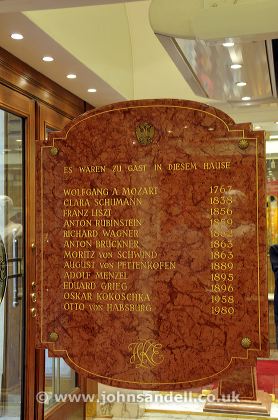 ES WAREN ZU GAST IN DIESEM HAUSE
WOLFGANG A MOZART 1767
CLARA SCHUMANN 1838
FRANZ LISZT 1856
ANTON RUBINSTEIN 1859
RICHARD WAGNER 1862
ANTON BRUCKNER 1863
MORITZ von SCHWIND 1863
AUGUST von PETTENKOFEN 1889
ADOLF MENZEL 1895
EDUARD GRIEG 1896
OSKAR KOKOSCHKA 1958
OTTO von HABSBURG 1980
© www.johnsandell.co.uk